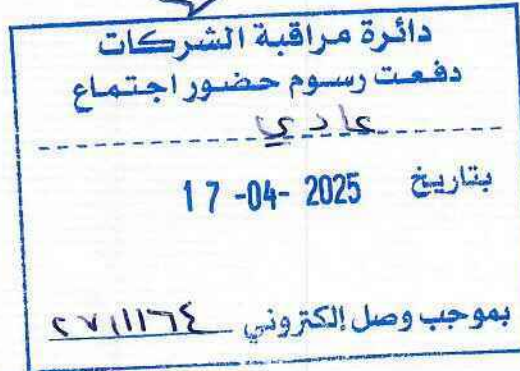 دائرة مراقبة الشركات
دفعت رسوم حضور اجتماع
عادي
بتاريخ 17 -04- 2025
بموجب وصل إلكتروني ٢٧١١١٦٤